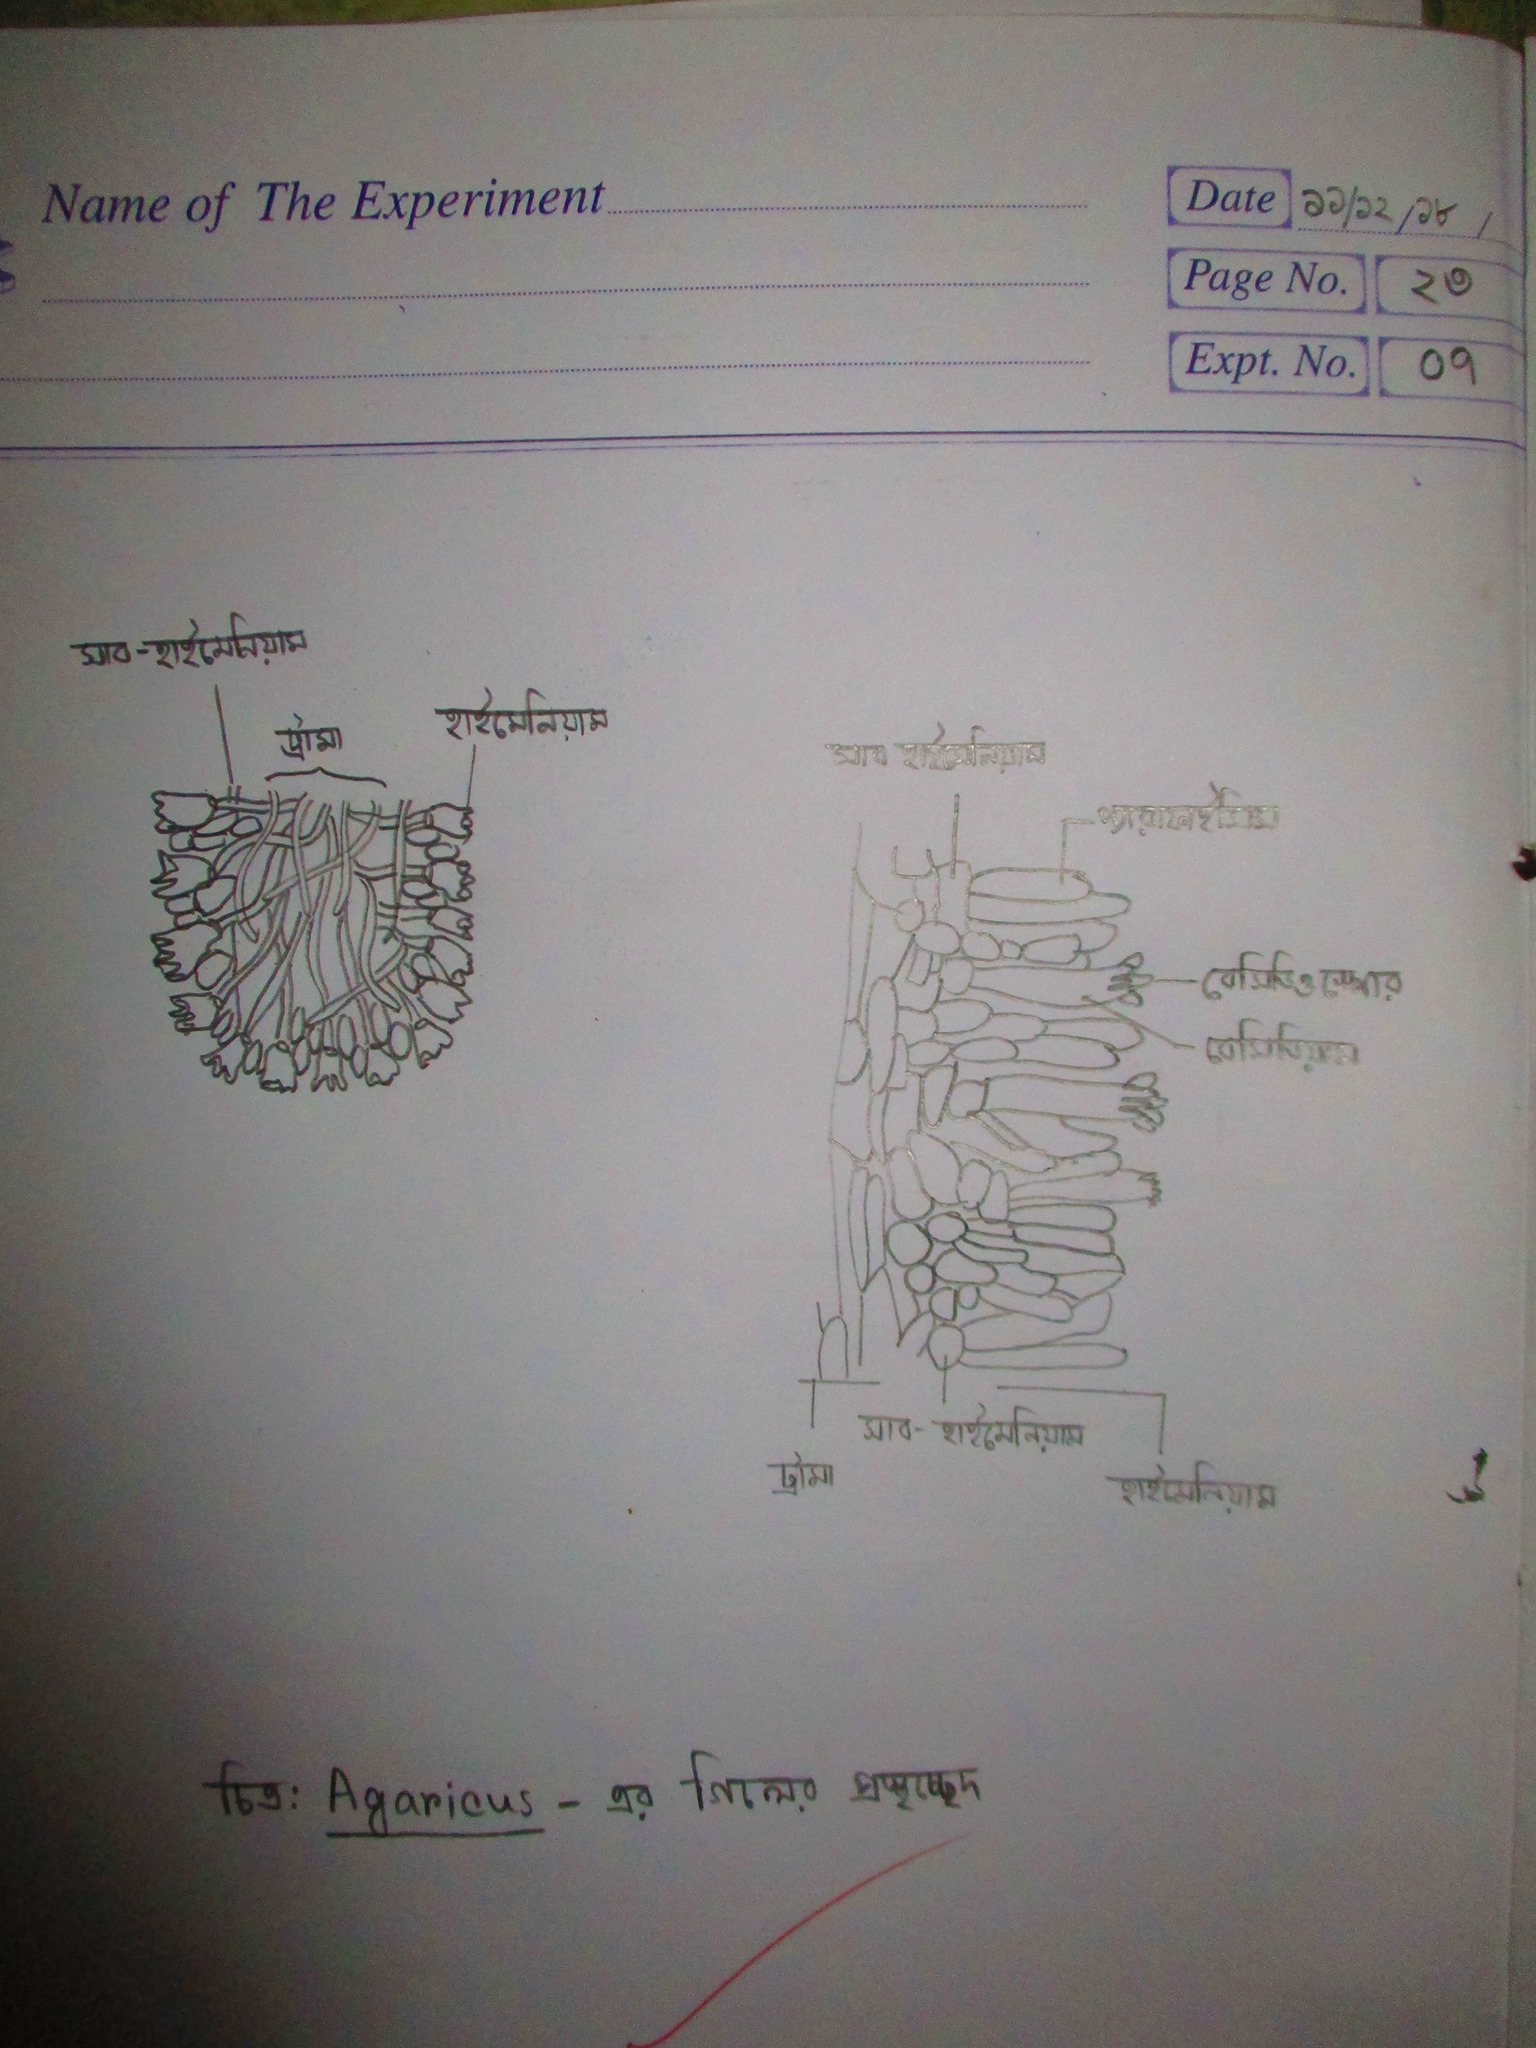 Name of The Experiment
Date ১১/১২/১৮ /
Page No. ২৩
Expt. No. ০৭
সাব-হাইমেনিয়াম
ট্রামা
হাইমেনিয়াম
সাব হাইমেনিয়াম
প্যারাফাইসিস
বেসিডিওস্পোর
বেসিডিয়াম
সাব-হাইমেনিয়াম
ট্রামা
হাইমেনিয়াম
চিত্র: Agaricus - এর গিলের প্রস্থচ্ছেদ